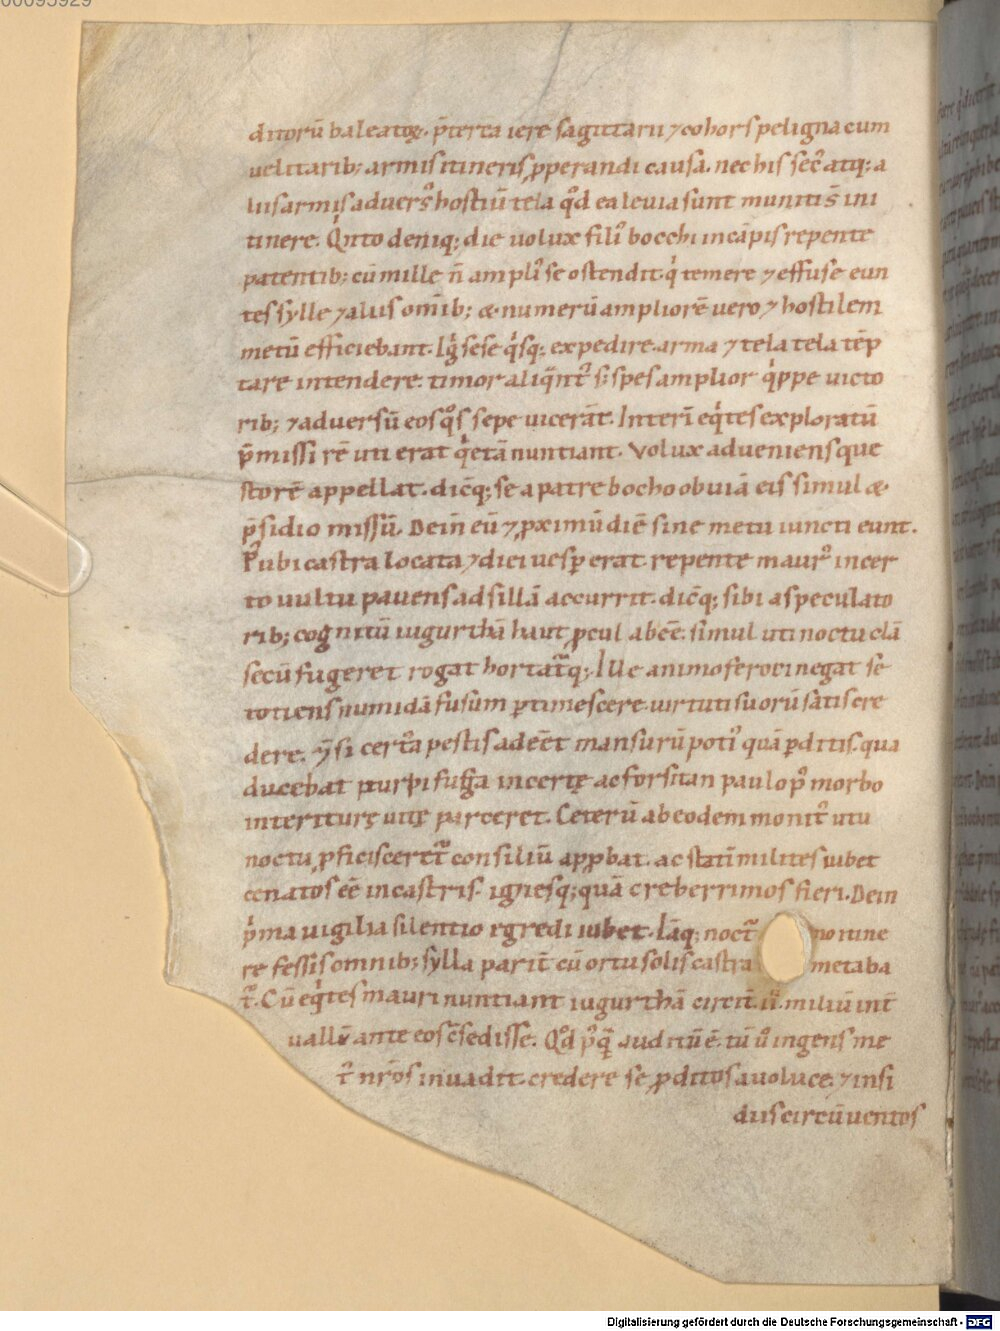 00095929
ditorū baleatoꝝ. p̄terea iere sagittarii ⁊ cohors peligna cum
uelitarib; armis itineris ꝓperandi causa. nec his sec̄ atq; a
liis armis aduers᷒ hostiū tela qͦd ea leuia sunt muniti s̄ in i
tinere. Qͥnto deniq; die uolux fili᷒ bocchi in cāpis repente
patentib; cū mille ñ ampli᷒ se ostendit. qͥ temere ⁊ effuse eun
tes sylle ⁊ aliis om̄ib; & numerū ampliorē uero ⁊ hostilem
metū efficiebant. Igͥ sese qͥsq; expedire. arma ⁊ tela tela tēp
tare intendere. timor aliqͣnt᷒ s; spes amplior qͥppe uicto
rib; ⁊ aduersū eos qͦs sepe uicerāt. Interī eqͥtes exploratū
p̄missi rē uti erat qͥetā nuntiant. Volux adueniens que
storē appellat. dicq̄; se a patre bocho obuiā eis simul &
p̄sidio missū. Dein̄ eū ⁊ ꝓximū diē sine metu iuncti eunt.
P᷒ ubi castra locata ⁊ diei uesꝑ erat. repente maur᷒ incer
to uultu pauens ad sillā accurrit. dicq̄; sibi a speculato
rib; cognitū iugurthā haut ꝓcul abēe. simul uti noctu clā
secū fugeret rogat hortatᷣq;. Ille animo feroci negat se
totiens numidā fusum ꝑtimescere. uirtuti suorū satis cre
dere. ⁊̄ si certa pestis adeēt mansurū poti᷒ quā ꝓditis. qua
ducebat ꝑ turpi fuga incertę ac forsitan paulo p᷒ morbo
interiturę uitę parceret. Ceterū ab eodem monit᷒ utu
noctu ꝓficisceretᷣ consiliū apꝓbat. ac statī milites iubet
cenatos ēe in castris. ignesq; quā creberrimos fieri. Dein
pͥma uigilia silentio egredi iubet. Iāq; noctᷣno itine
re fessis omnib; sylla parit̄ cū ortu solis castra metaba
tᷣ. Cū eqͥtes mauri nuntiant iugurthā circit̄. iiͦ. miliū int̄
uallū ante eos c̄sedisse. Qͦd pͦqͣ̄ auditū ē. tū uͦ ingens me
t᷒ nr̄os inuadit. credere se ꝓditos a uoluce. ⁊ insi
diis circūuentos
Digitalisierung gefördert durch die Deutsche Forschungsgemeinschaft - DFG